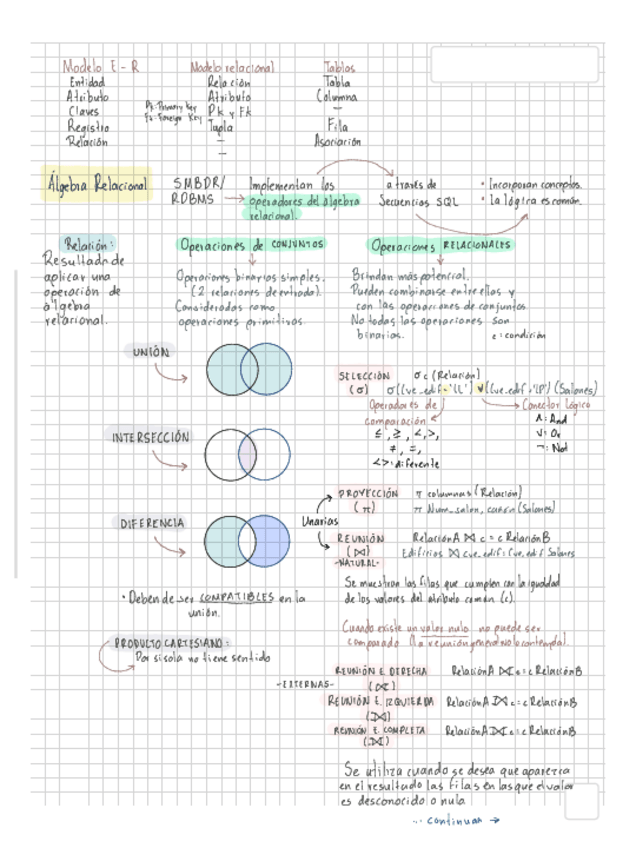 Modelo E-R   Modelo relacional   Tablas
Entidad   Relación   Tabla
Atributo   Atributo   Columna
Claves   Pk: Primary Key   Pk y Fk   —
Fk: Foreign Key
Registro   Tupla   Fila
Relación   —   Asociación
—
Álgebra Relacional
SMBDR/
RDBMS
Implementan los
operadores del álgebra
relacional.
a través de
Secuencias SQL
• Incorporan conceptos.
• La lógica es común.
Relación:
Resultado de
aplicar una
operación de
álgebra
relacional.
Operaciones de CONJUNTOS
Operaciones binarias simples.
(2 relaciones de entrada).
Consideradas como
operaciones primitivas.
UNIÓN
INTERSECCIÓN
DIFERENCIA
• Deben de ser COMPATIBLES en la
unión.
PRODUCTO CARTESIANO:
Por si sola no tiene sentido
Operaciones RELACIONALES
Brindan más potencial.
Pueden combinarse entre ellas y
con las operaciones de conjuntos.
No todas las operaciones son
binarias.
c = condición
SELECCIÓN   σ c (Relación)
(σ)   σ((Cve_edif = 'L') V (Cve_edif = 'P') (Salones)
Operadores de
comparación
≤, ≥, <, >,
≠, =,
<>: diferente
Conector Lógico
Λ: And
V: Or
¬: Not
Unarias
PROYECCIÓN   π columnas (Relación)
(π)   π Num_salon, cañon (Salones)
REUNIÓN   Relación A ⋈ c = c Relación B
(⋈)   Edificios ⋈ cve_edif: Cve_edif Salones
-NATURAL-
Se muestran las filas que cumplen con la igualdad
de los valores del atributo común (c).
Cuando existe un valor nulo no puede ser
comparado (la reunión general no lo contempla).
-EXTERNAS-
REUNIÓN E. DERECHA   Relación A ⋈ c = c Relación B
(⋈)
REUNIÓN E. IZQUIERDA   Relación A ⋈ c = c Relación B
(⋈)
REUNIÓN E. COMPLETA   Relación A ⋈ c = c Relación B
(⋈)
Se utiliza cuando se desea que aparezca
en el resultado las filas en las que el valor
es desconocido o nulo
... continuar →